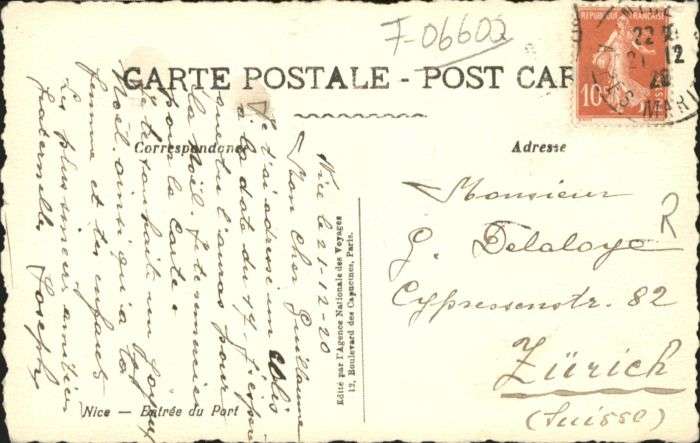 F-06602
RÉPUBLIQUE FRANÇAISE
10
22
21 12
20
MARIT
CARTE POSTALE - POST CAR
Correspondance
Adresse
Nice le 21-12-20
Mon cher Guillaume
Je t'ai adressé un colis
à la date du 17. J'espère
que tu l'auras pour
la Noël. Je te remercie
pour la carte.
Je te souhaite un joyeux
Noël ainsi qu'à ta
femme et tes enfants
Les plus sincères amitiés
fraternelles Joseph
Edité par l'Agence Nationale des Voyages
12, Boulevard des Capucines, Paris.
Monsieur
G. Delaloye
R
Cypressenstr. 82
Zürich
(Suisse)
Nice — Entrée du Port